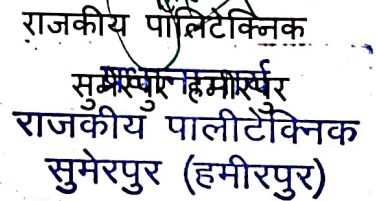 राजकीय पॉलिटेक्निक
सुमेरपुर हमीरपुर
राजकीय पालीटेक्निक
सुमेरपुर (हमीरपुर)